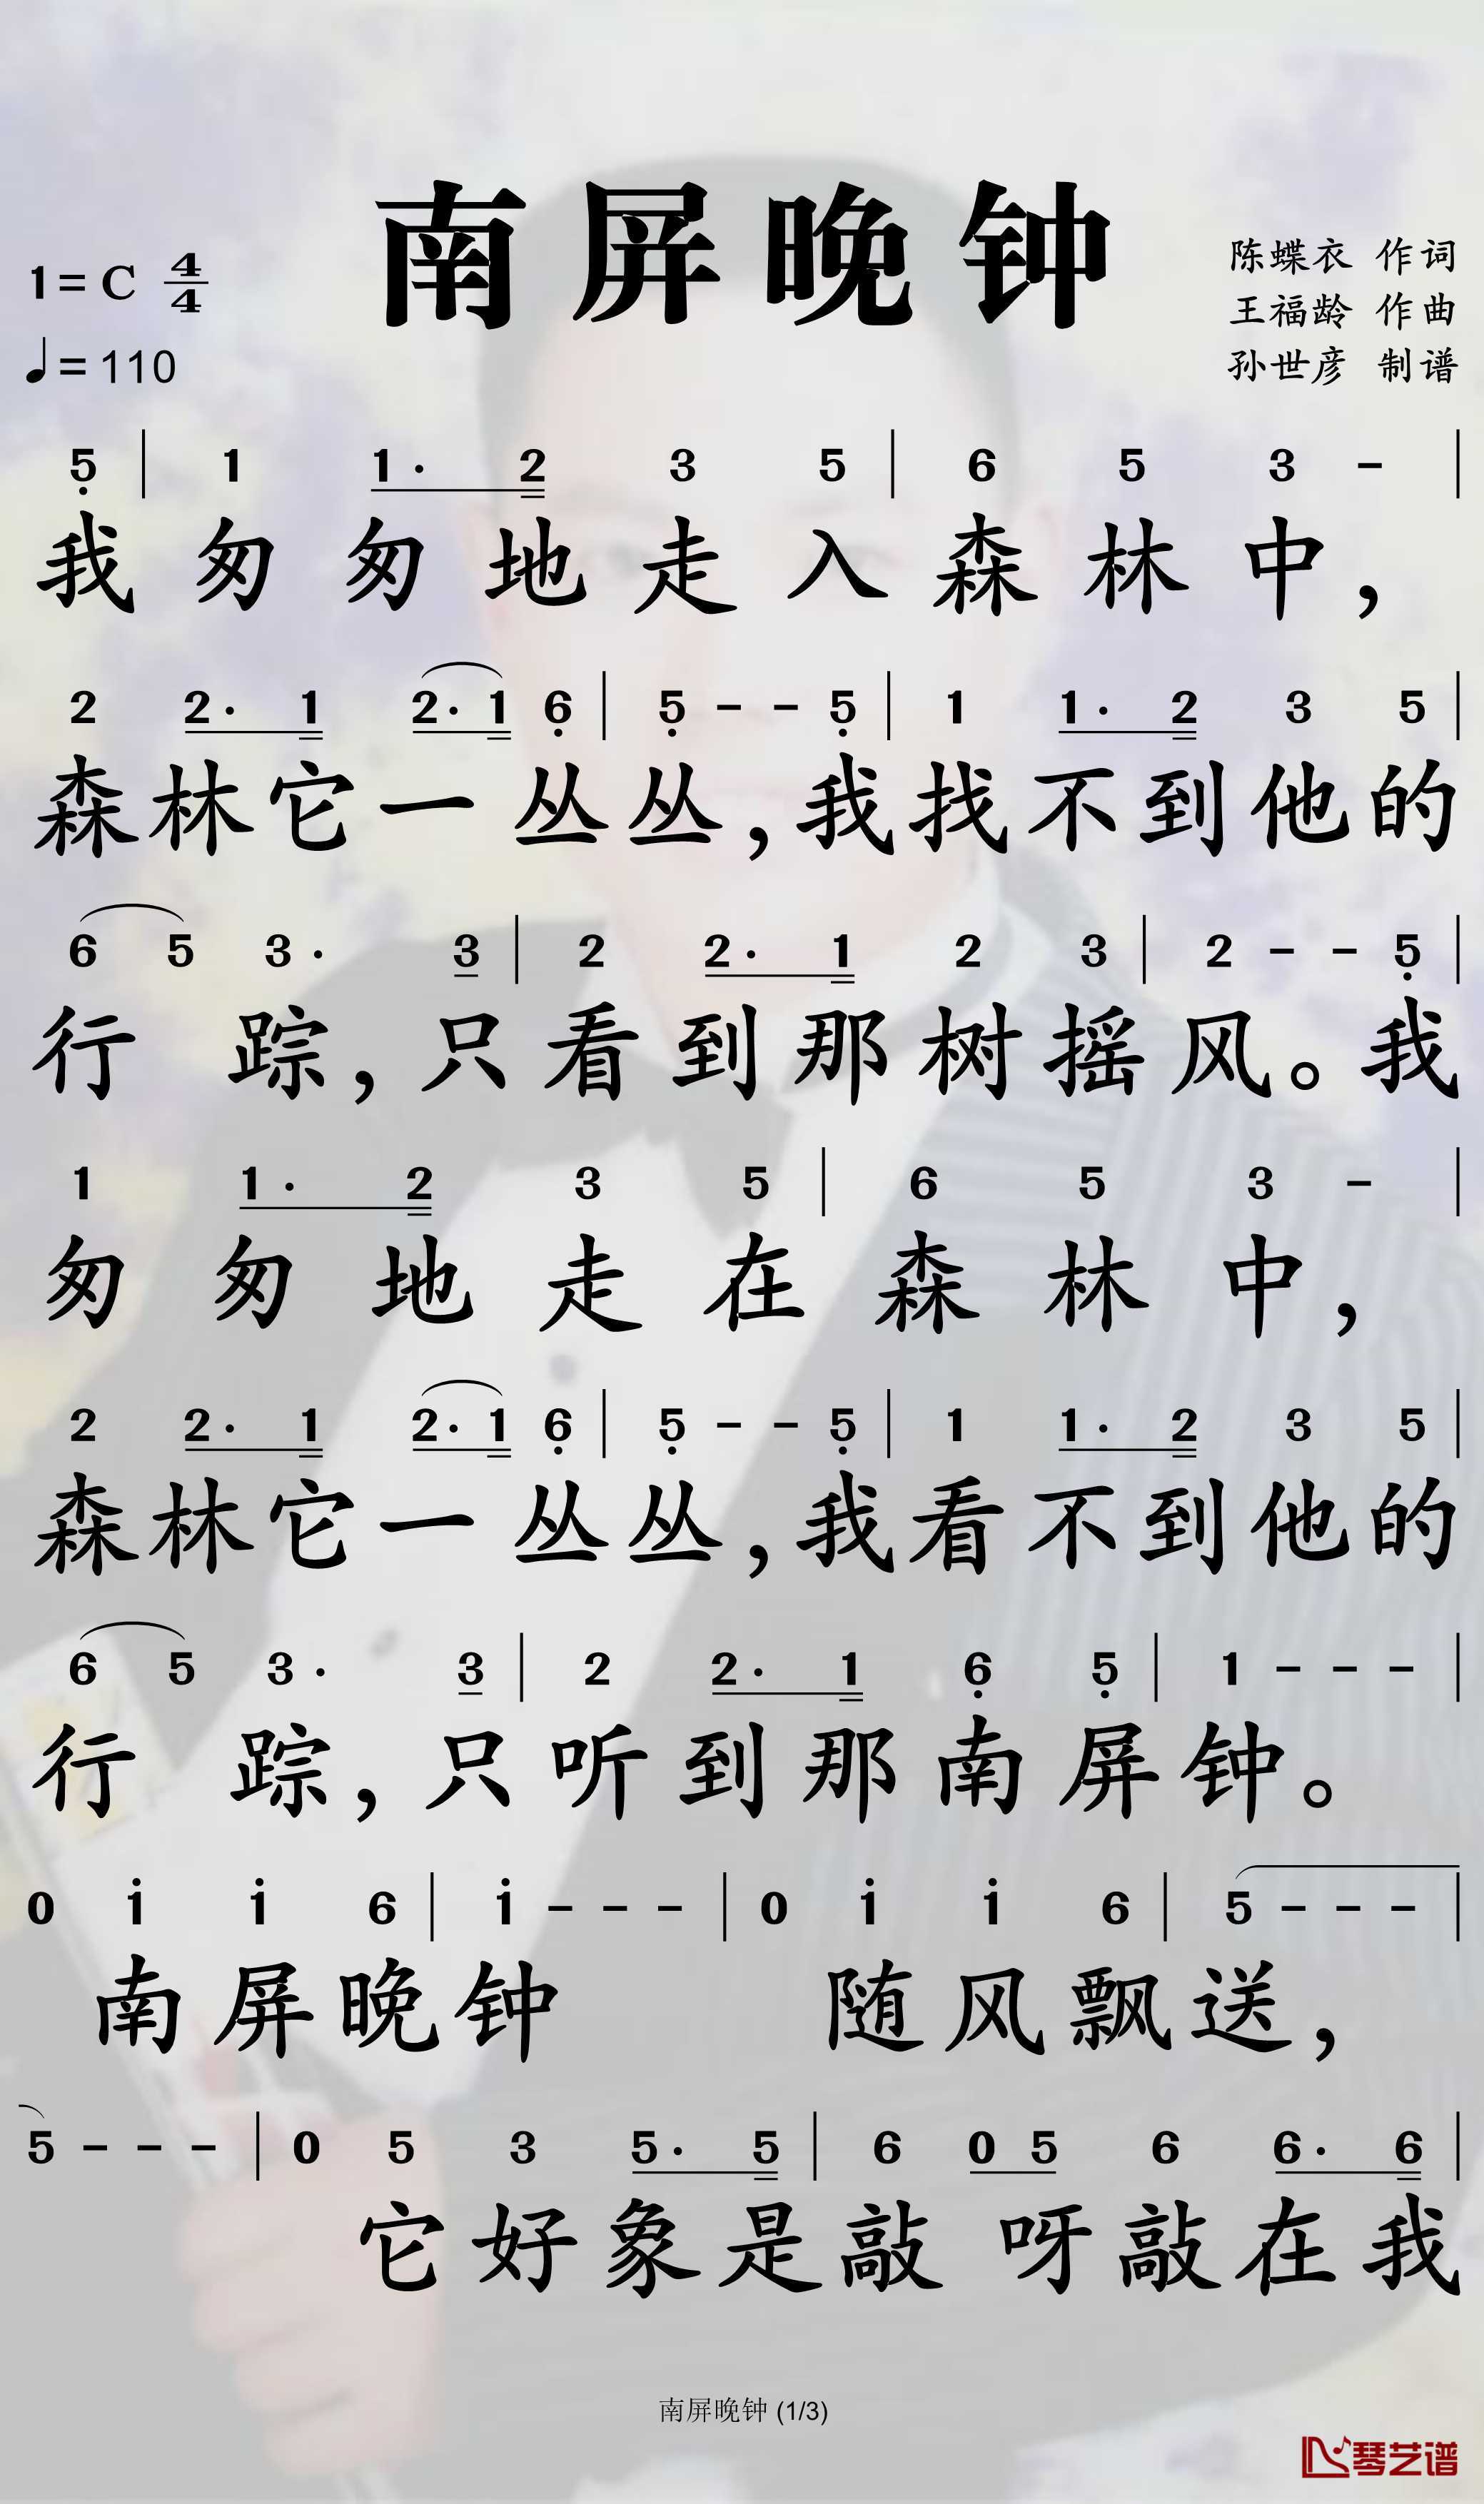 南屏晚钟
1=C 4/4
♩=110
陈蝶衣 作词
王福龄 作曲
孙世彦 制谱
5̣ | 1 1· 2 3 5 | 6 5 3 - |
我匆匆地走入森林中，
2 2· 1 2· 1 6̣ | 5̣ - - 5̣ | 1 1· 2 3 5 |
森林它一丛丛，我找不到他的
6 5 3· 3 | 2 2· 1 2 3 | 2 - - 5̣ |
行踪，只看到那树摇风。我
1 1· 2 3 5 | 6 5 3 - |
匆匆地走在森林中，
2 2· 1 2· 1 6̣ | 5̣ - - 5̣ | 1 1· 2 3 5 |
森林它一丛丛，我看不到他的
6 5 3· 3 | 2 2· 1 6̣ 5̣ | 1 - - - |
行踪，只听到那南屏钟。
0 1̇ 1̇ 6 | 1̇ - - - | 0 1̇ 1̇ 6 | 5 - - - |
南屏晚钟 随风飘送，
5 - - - | 0 5 3 5· 5 | 6 0 5 6 6· 6 |
它好象是敲 呀敲在我
南屏晚钟 (1/3)
琴艺谱